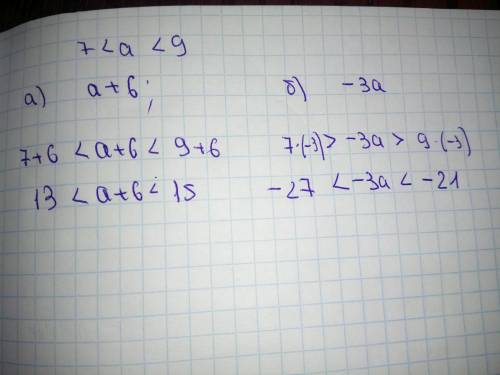 7 < a < 9
а) a+6;
7+6 < a+6 < 9+6
13 < a+6 < 15
б) -3a
7·(-3) > -3a > 9·(-3)
-27 < -3a < -21